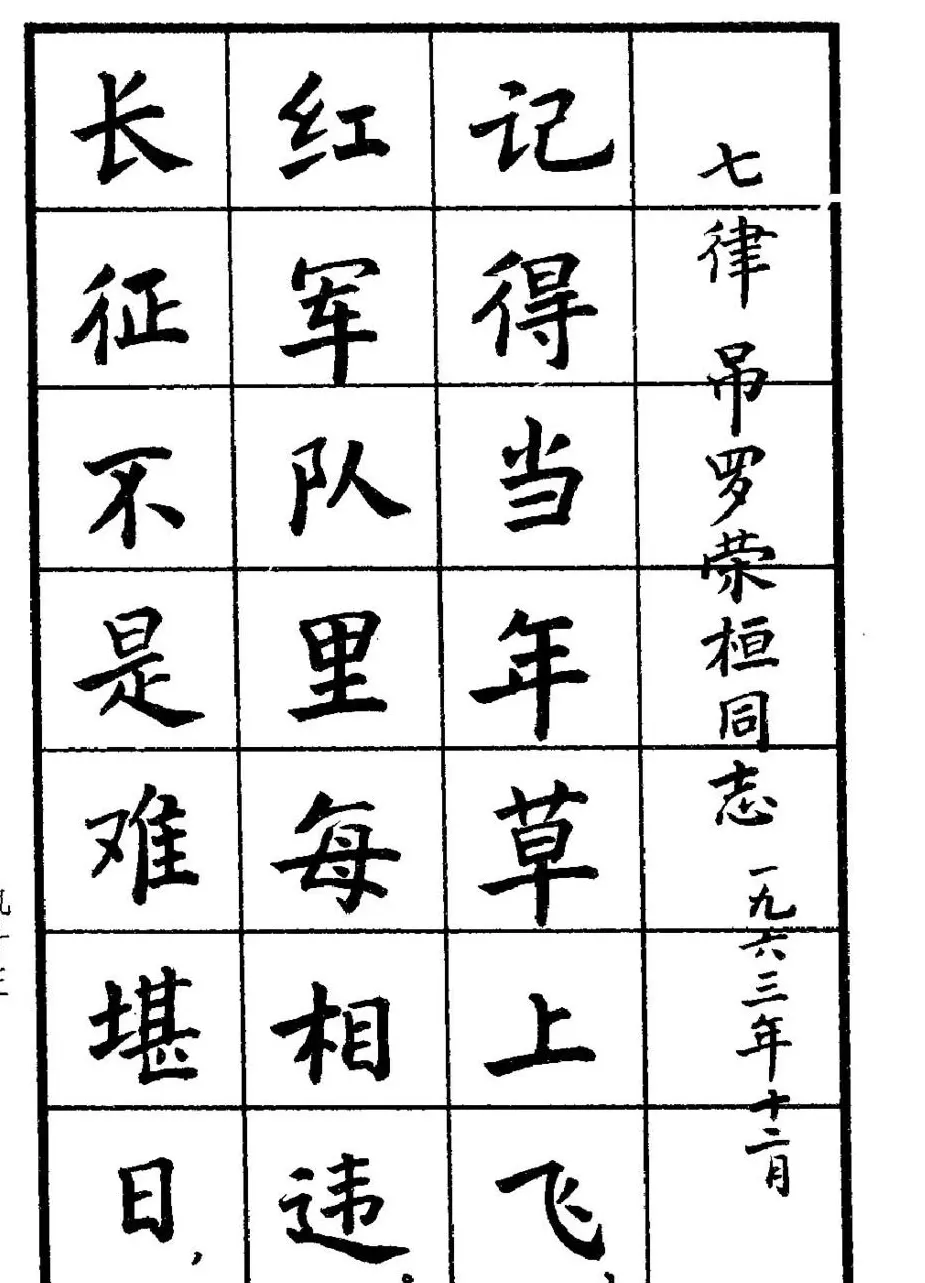 七律 吊罗荣桓同志 一九六三年十二月
记得当年草上飞，
红军队里每相违。
长征不是难堪日，